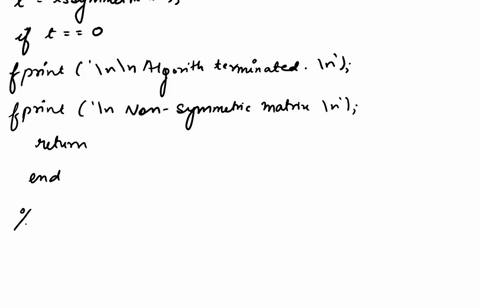 if t == 0
fprint ('\n\n Algorith terminated. \n');
fprint ('\n Non-symmetric matrix \n');
return
end
%